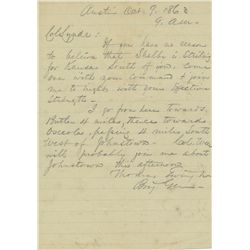 Austin Oct. 9. 1863
9. A.M.
Col Snyder:
If you have no reason
to believe that Shelby is striking
for Kansas South of you. Come
over with your Command & join
me to night with some
Strength—
I go from here towards
Butler 11 miles, thence towards
Osceola, passing 4 miles South
west of Johnstown. Col.
will probably join me about
Johnstown this afternoon
Thomas Ewing Jr
Brig Genl